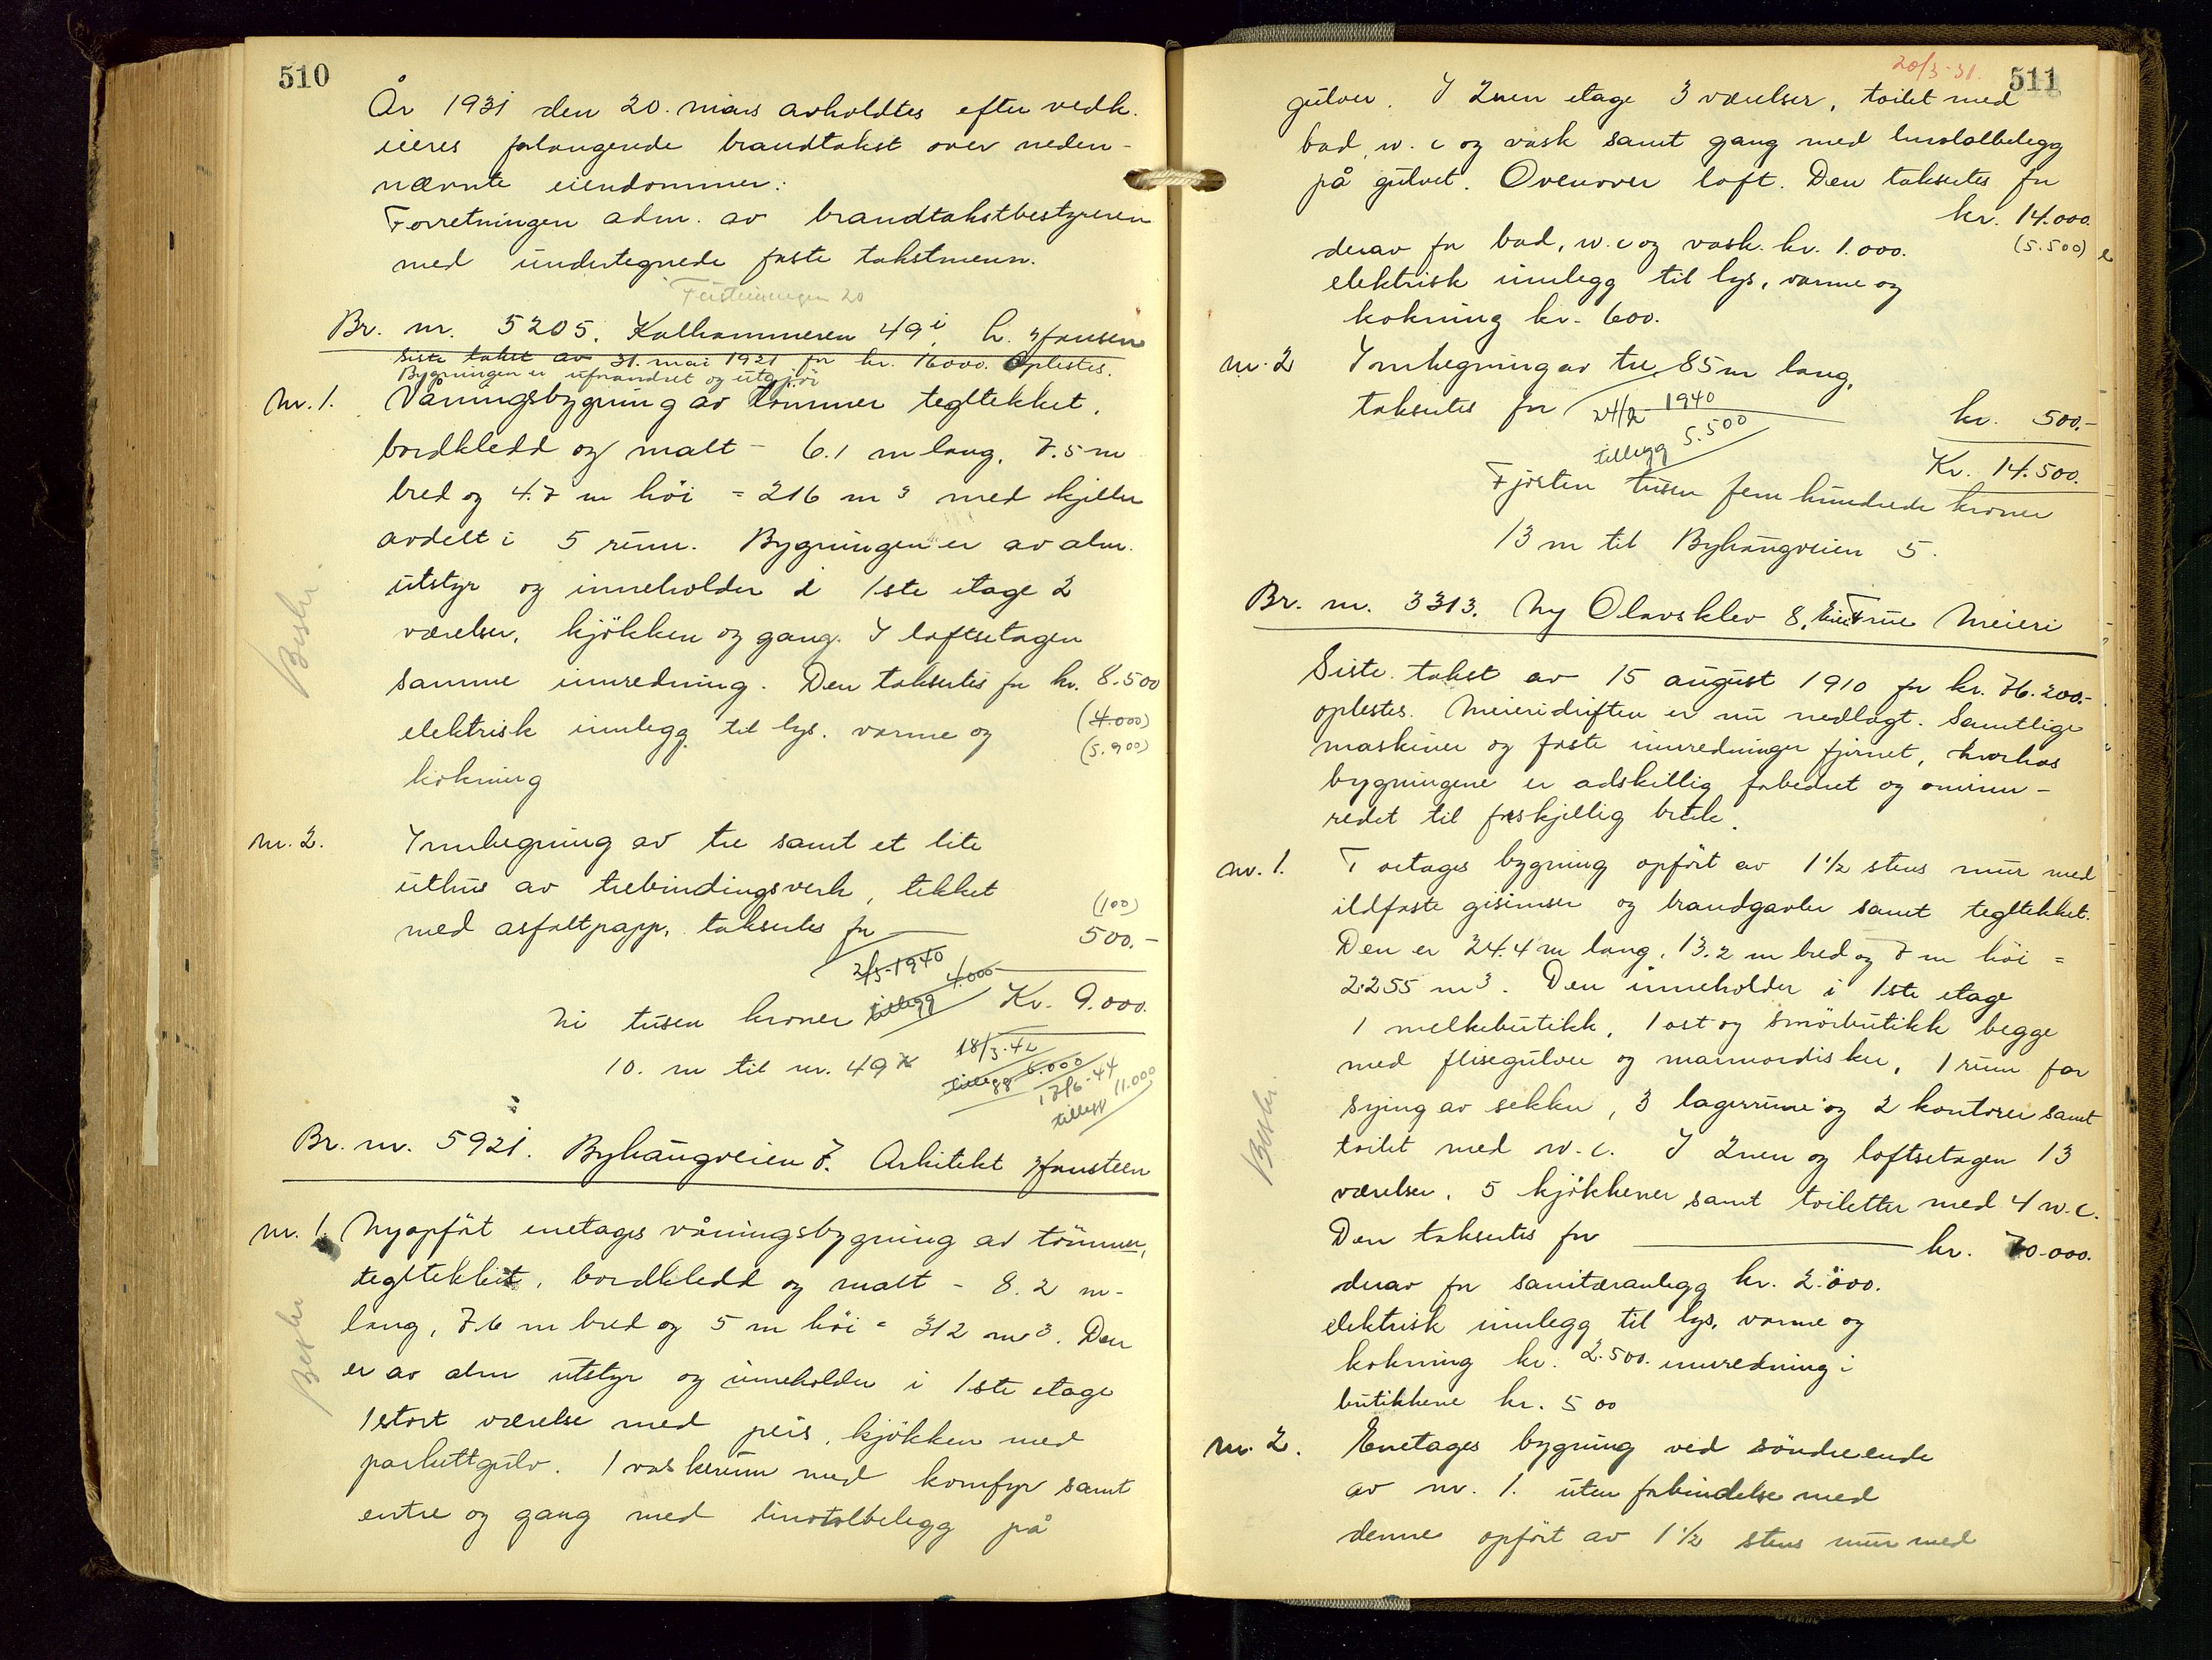 510
År 1931 den 20. mars avholdtes efter vedk.
eieres forlangende brandtakst over neden-
nævnte eiendommer:
Forretningen adm. av brandtakstbestyreren
med undertegnede faste takstmenn.
20
Br. nr. 5205. Kalhammeren 49 i, h. Hansen
Siste takst av 31. mai 1921 for kr. 16000. Oplestes.
Bygningen er uforandret og utgjör
Nr. 1. Våningsbygning av tømmer tegltekket,
bordkledd og malt - 6.1 m lang, 7.5 m
bred og 4.7 m höi = 216 m3 med skjeller
avdelt i 5 rum. Bygningen er av alm.
utstyr og inneholder i 1ste etage 2
værelser, kjökken og gang. I loftsetagen
samme innredning. Den takseres for kr. 8.500
elektrisk innlegg til lys, varme og (4.000)
(5.900)
kokning
Besikt.
nr. 2. Innhegning av tre samt et lite
uthus av trebindingsverk, tekket
(100)
med asfaltpapp, takseres for 500.-
2/5-1940
tillegg 4.000
Ni tusen kroner Kr. 9.000.
10. m til nr. 49 k
18/3-42
tillegg 6.000
12/6-44
tillegg 11.000
Br. nr. 5921. Byhaugveien 7. Arkitekt Hansteen
nr. 1. Nyopfört enetages våningsbygning av tömmer,
tegltekket, bordkledd og malt - 8.2 m
lang, 7.6 m bred og 5 m höi = 312 m3. Den
er av alm utstyr og inneholder i 1ste etage
1 stort værelse med peis, kjökken med
parkettgulv. 1 vaskerum med komfyr samt
entre og gang med linotolbelegg på
20/3-31. 511
gulver. I 2nen etage 3 værelser, toilet med
bad, w. c og vask samt gang med linotolbelegg
på gulvet. Ovenover loft. Den takseres for
kr. 14.000.
derav for bad, w.c og vask. kr. 1.000. (5.500)
elektrisk innlegg til lys, varme og
kokning kr. 600.
nr. 2 Innhegning av tre 85 m lang,
takseres for kr. 500.-
24/2 1940
tillegg 5.500
Kr. 14.500.
Fjorten tusen fem hundrede kroner
13 m til Byhaugveien 5.
Br. nr. 3313. Ny Olavsklev 8, Meieri
Siste takst av 15 august 1910 for kr. 76.200.-
oplestes. Meieridriften er nu nedlagt. Samtlige
maskiner og faste innredninger fjernet, hvorhos
bygningene er adskillig forbedret og ominn-
redet til forskjellig bruk.
nr. 1. Toetages bygning opfört av 1 1/2 stens mur med
ildfaste gesimser og brandgavler samt tegltekket.
Den er 24.4 m lang, 13.2 m bred og 7 m höi =
2.255 m3. Den inneholder i 1ste etage
1 melkebutikk, 1 ost og smörbutikk begge
med flisegulver og marmordisker, 1 rum for
sying av sekker, 3 lagerrum og 2 kontorer samt
toilet med w.c. I 2nen og loftsetagen 13
værelser, 5 kjökkener samt toiletter med 4 w.c.
Den takseres for kr. 70.000.
derav for sanitæranlegg kr. 2.000.
elektrisk innlegg til lys, varme og
kokning kr. 2.500. innredning i
butikkene kr. 500
nr. 2. Enetages bygning ved söndre ende
av nr. 1. uten forbindelse med
denne opfört av 1 1/2 stens mur med